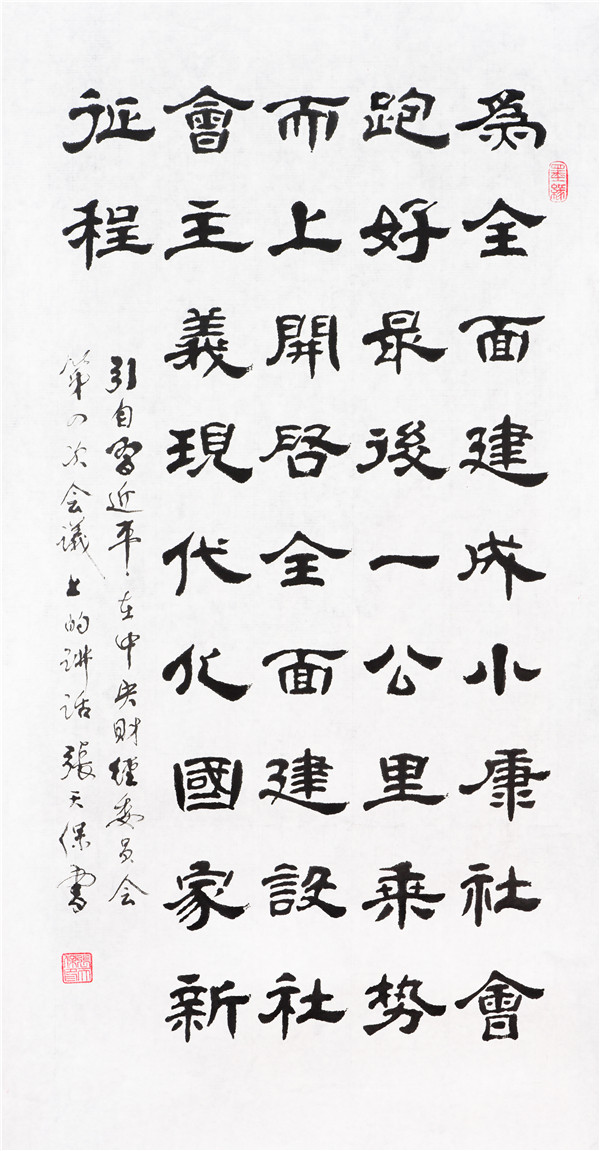 為全面建成小康社會
跑好最後一公里乘势
而上開啓全面建設社
會主義現代化國家新
征程
引自習近平在中央财經委員会
第四次会議上的講話 張天保書